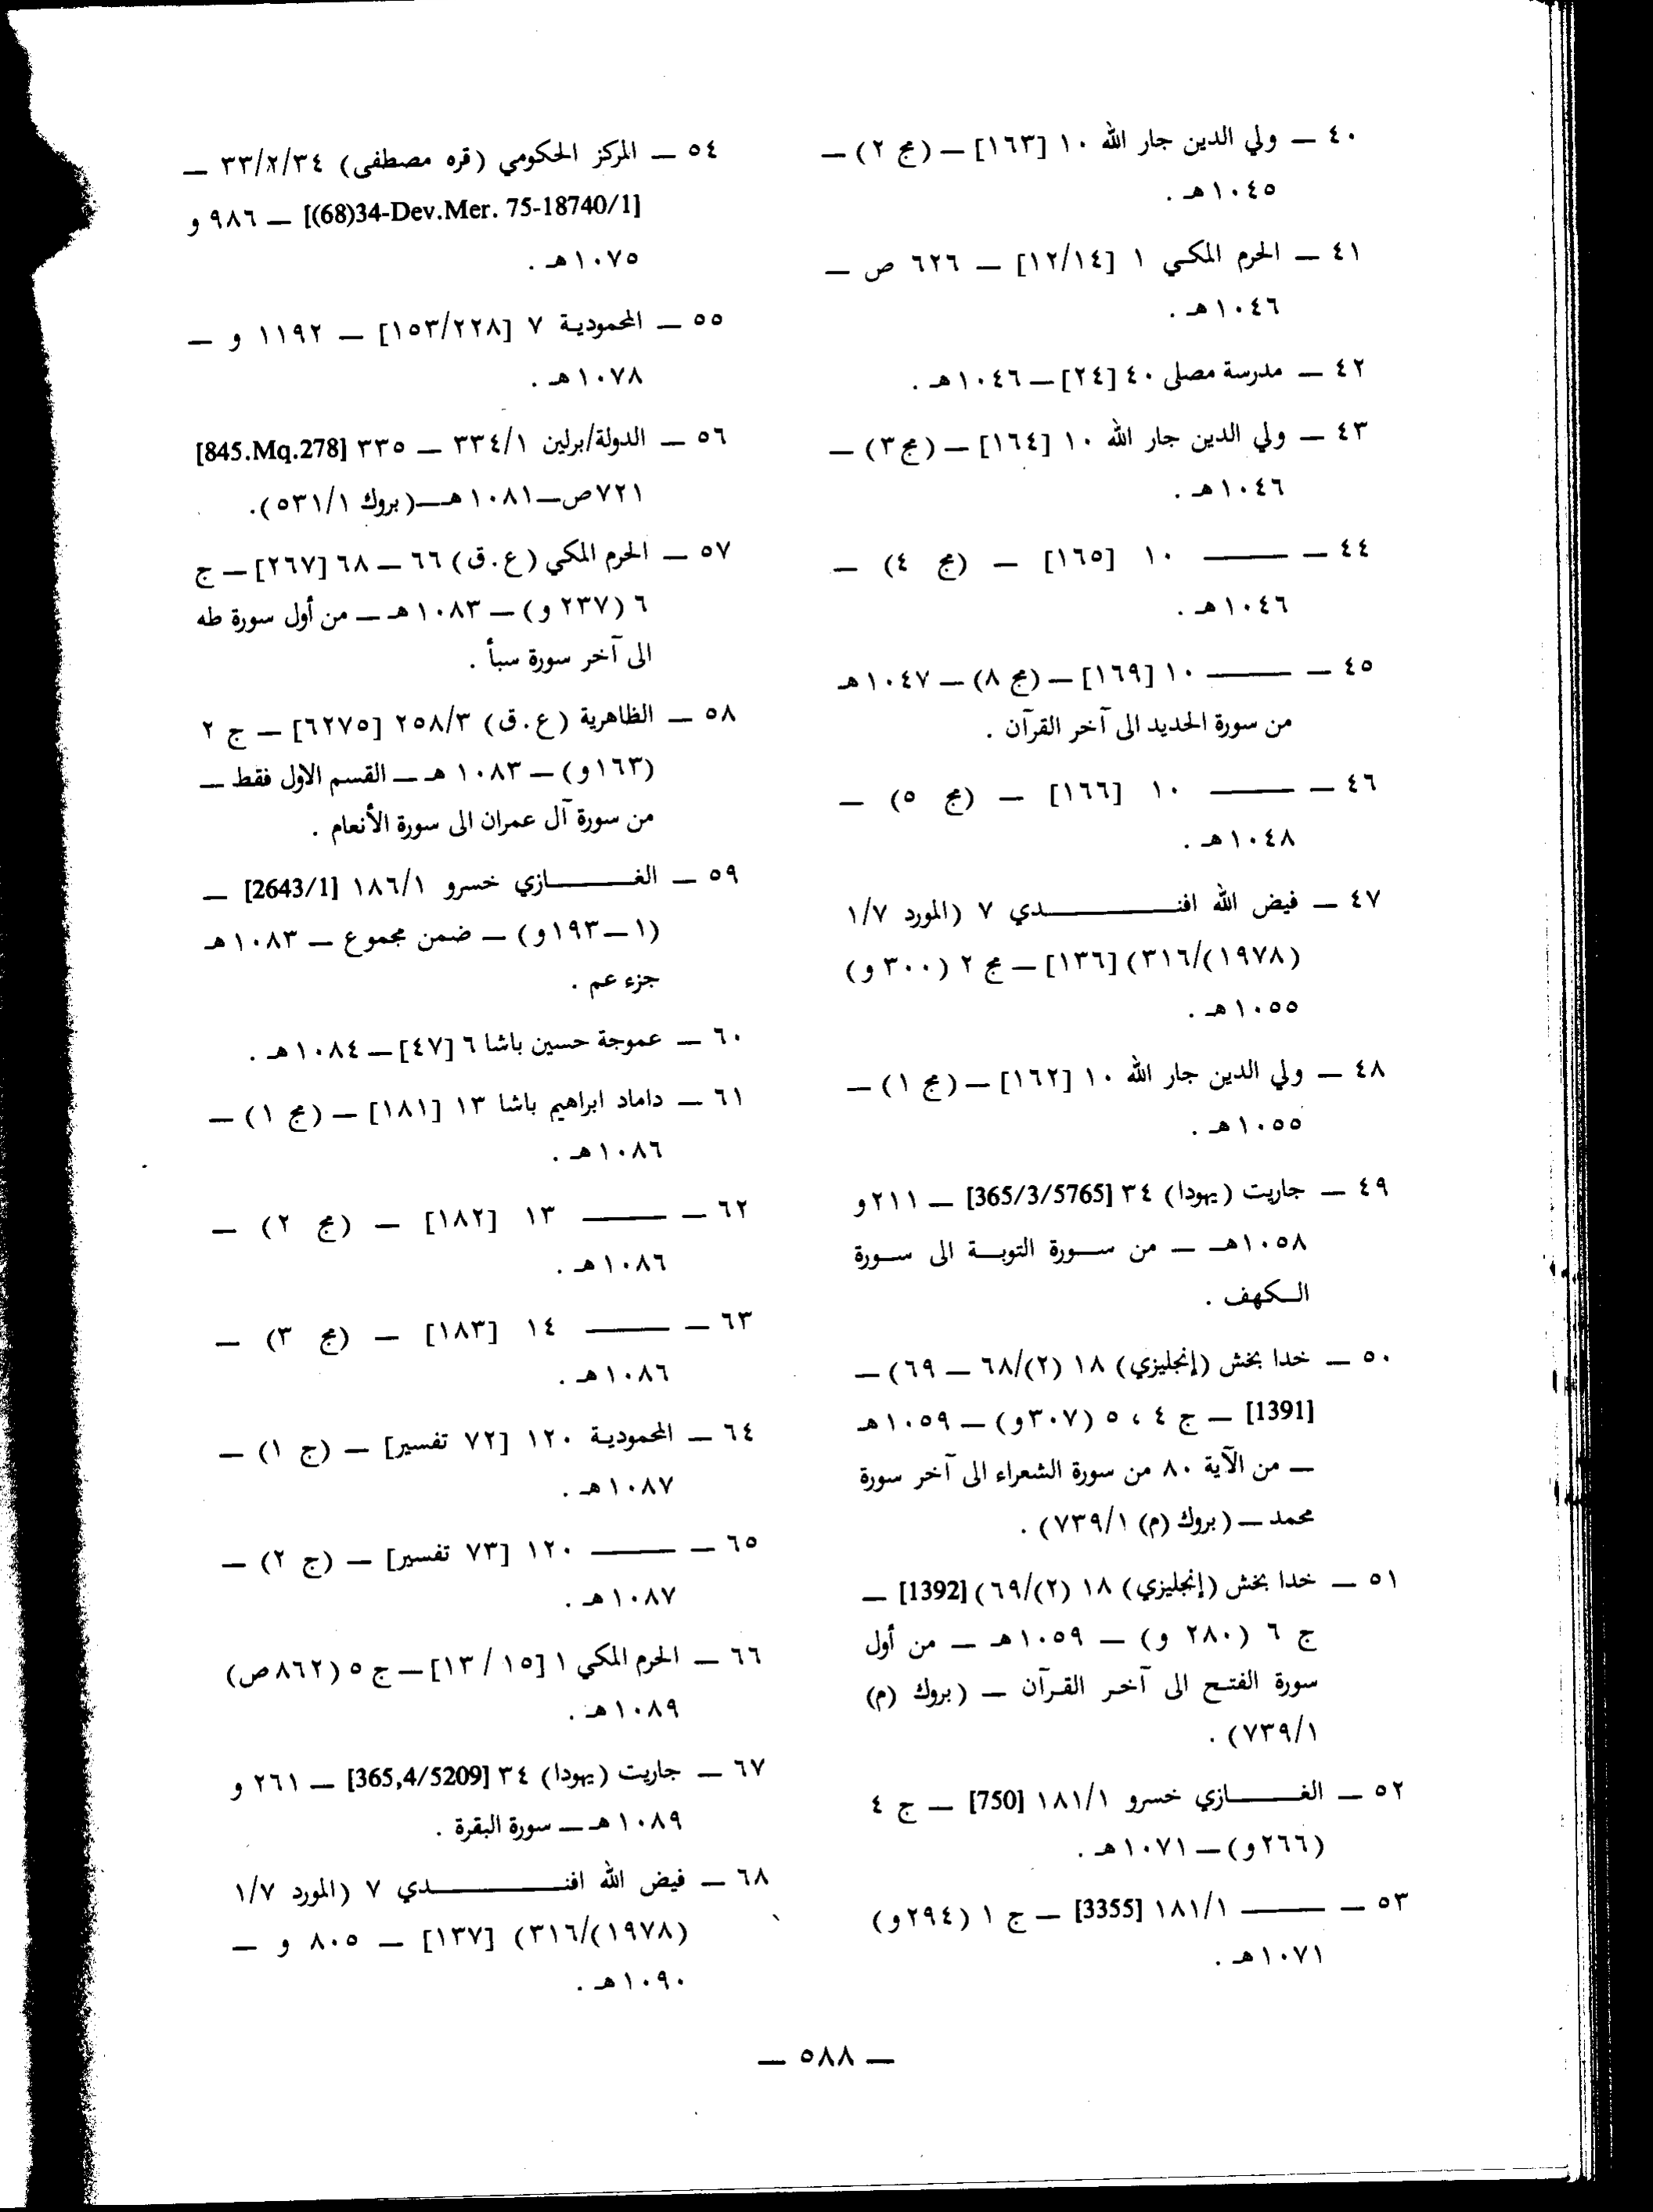 ٤٠ — ولي الدين جار الله ١٠ [١٦٣] — (مج ٢) —
١٠٤٥هـ .
٤١ — الحرم المكي ١ [١٢/١٤] — ٦٢٦ ص —
١٠٤٦هـ .
٤٢ — مدرسة مصلى ٤٠ [٢٤] — ١٠٤٦هـ .
٤٣ — ولي الدين جار الله ١٠ [١٦٤] — (مج ٣) —
١٠٤٦هـ .
٤٤ — ——— ١٠ [١٦٥] — (مج ٤) —
١٠٤٦هـ .
٤٥ — ——— ١٠ [١٦٩] — (مج ٨) — ١٠٤٧هـ
من سورة الحديد الى آخر القرآن .
٤٦ — ——— ١٠ [١٦٦] — (مج ٥) —
١٠٤٨هـ .
٤٧ — فيض الله افندي ٧ (المورد ١/٧
(١٩٧٨)/٣١٦) [١٣٦] — مج ٢ (٣٠٠ و)
١٠٥٥هـ .
٤٨ — ولي الدين جار الله ١٠ [١٦٢] — (مج ١) —
١٠٥٥هـ .
٤٩ — جاريت (يهودا) ٣٤ [365/3/5765] — ٢١١و
١٠٥٨هـ — من سورة التوبة الى سورة
الكهف .
٥٠ — خدا بخش (إنجليزي) ١٨ (٢)/٦٨ — ٦٩) —
[1391] — ج ٤ ، ٥ (٣٠٧و) — ١٠٥٩هـ
— من الآية ٨٠ من سورة الشعراء الى آخر سورة
محمد — (بروك (م) ٧٣٩/١) .
٥١ — خدا بخش (إنجليزي) ١٨ (٢)/٦٩) [1392] —
ج ٦ (٢٨٠ و) — ١٠٥٩هـ — من أول
سورة الفتح الى آخر القرآن — (بروك (م)
٧٣٩/١) .
٥٢ — الغازي خسرو ١٨١/١ [750] — ج ٤
(٢٦٦و) — ١٠٧١هـ .
٥٣ — ——— ١٨١/١ [3355] — ج ١ (٢٩٤و)
١٠٧١هـ .
٥٤ — المركز الحكومي (قره مصطفى) ٣٣/٢/٣٤ —
[(68)34-Dev.Mer. 75-18740/1] — ٩٨٦ و
١٠٧٥هـ .
٥٥ — المحمودية ٧ [١٥٣/٢٢٨] — ١١٩٢ و —
١٠٧٨هـ .
٥٦ — الدولة/برلين ٣٣٤/١ — ٣٣٥ [845.Mq.278]
٧٢١ص—١٠٨١هـ—(بروك ٥٣١/١).
٥٧ — الحرم المكي (ع.ق) ٦٦ — ٦٨ [٢٦٧] — ج
٦ (٢٣٧ و) — ١٠٨٣هـ — من أول سورة طه
الى آخر سورة سبأ .
٥٨ — الظاهرية (ع.ق) ٢٥٨/٣ [٦٢٧٥] — ج ٢
(١٦٣و) — ١٠٨٣ هـ — القسم الاول فقط —
من سورة آل عمران الى سورة الأنعام .
٥٩ — الغازي خسرو ١٨٦/١ [2643/1] —
(١—١٩٣و) — ضمن مجموع — ١٠٨٣هـ
جزء عم .
٦٠ — عموجة حسين باشا ٦ [٤٧] — ١٠٨٤هـ .
٦١ — داماد ابراهيم باشا ١٣ [١٨١] — (مج ١) —
١٠٨٦هـ .
٦٢ — ——— ١٣ [١٨٢] — (مج ٢) —
١٠٨٦هـ .
٦٣ — ——— ١٤ [١٨٣] — (مج ٣) —
١٠٨٦هـ .
٦٤ — المحمودية ١٢٠ [٧٢ تفسير] — (ج ١) —
١٠٨٧هـ .
٦٥ — ——— ١٢٠ [٧٣ تفسير] — (ج ٢) —
١٠٨٧هـ .
٦٦ — الحرم المكي ١ [١٥ / ١٣] — ج ٥ (٨٦٢ص)
١٠٨٩هـ .
٦٧ — جاريت (يهودا) ٣٤ [365,4/5209] — ٢٦١ و
١٠٨٩هـ — سورة البقرة .
٦٨ — فيض الله افندي ٧ (المورد ١/٧
(١٩٧٨)/٣١٦) [١٣٧] — ٨٠٥ و —
١٠٩٠هـ .
— ٥٨٨ —